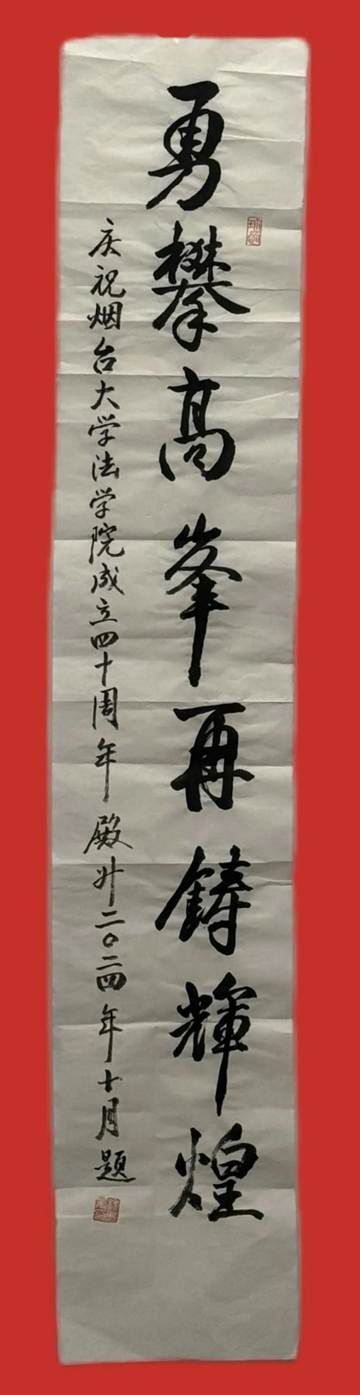 勇攀高峯再鑄輝煌
庆祝烟台大学法学院成立四十周年 殿升二〇二四年十月題